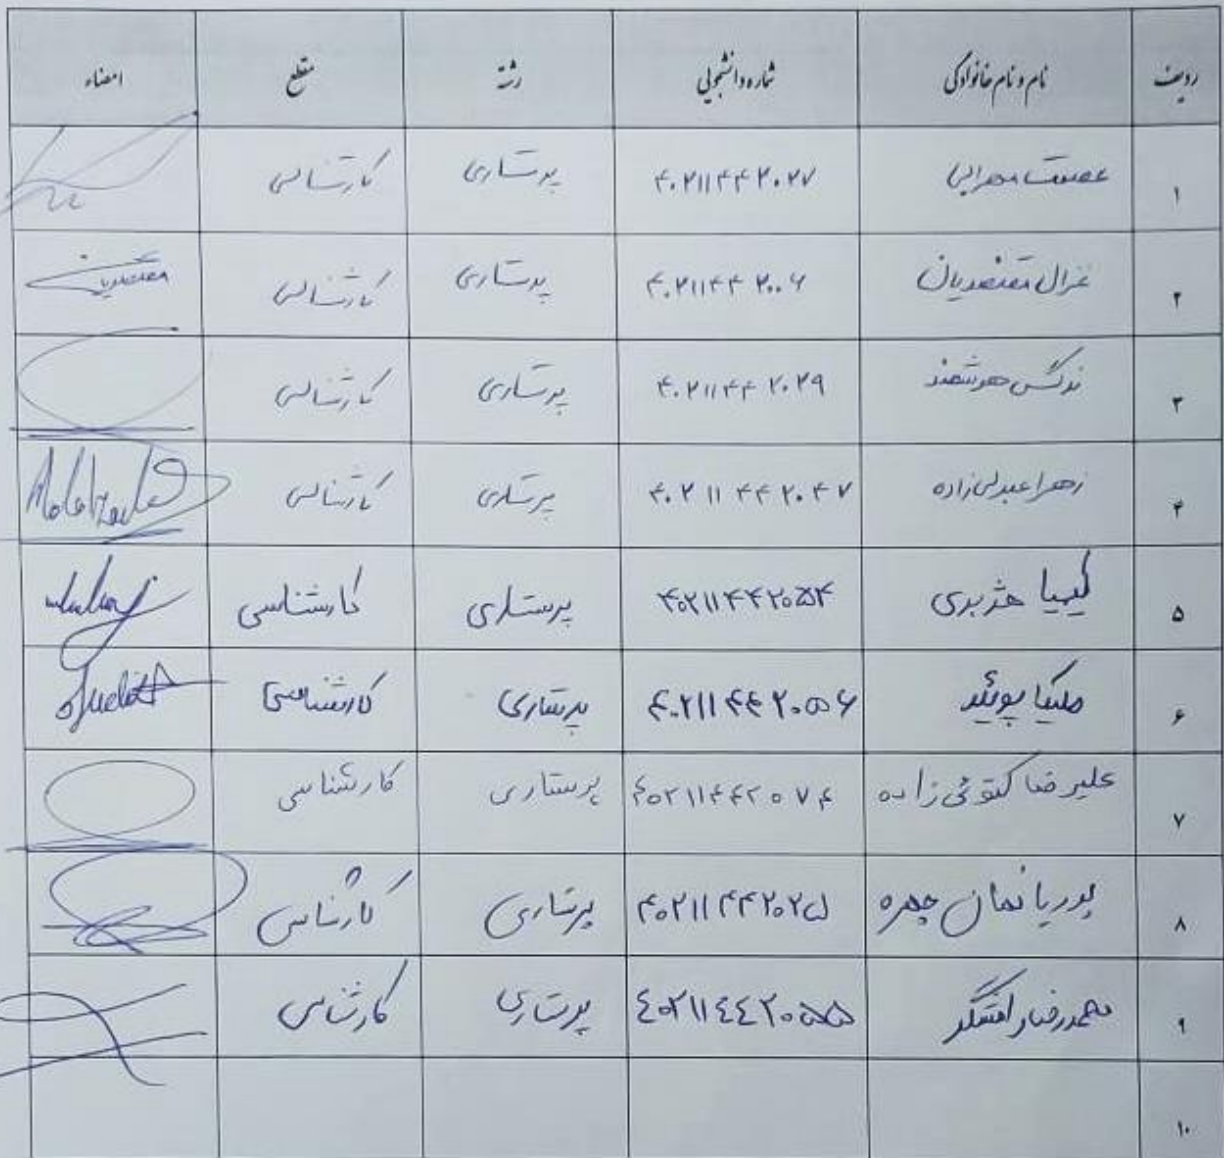 ردیف نام و نام خانوادگی شماره دانشجویی رشته مقطع امضاء
۱ عصمت مهرابی ۴۰۲۱۱۴۴۲۰۲۷ پرستاری کارشناسی
۲ غزال مقتصدیان ۴۰۲۱۱۴۴۲۰۰۶ پرستاری کارشناسی
۳ نرگس هوشمند ۴۰۲۱۱۴۴۲۰۲۹ پرستاری کارشناسی
۴ زهرا عبدلی‌زاده ۴۰۲۱۱۴۴۲۰۴۷ پرستاری کارشناسی
۵ کیمیا هژبری ۴۰۲۱۱۴۴۲۰۵۴ پرستاری کارشناسی
۶ ملیکا پوئید ۴۰۲۱۱۴۴۲۰۵۶ پرستاری کارشناسی
۷ علیرضا کتوئی زاده ۴۰۲۱۱۴۴۲۰۷۴ پرستاری کارشناسی
۸ پوریا نمان چهره ۴۰۲۱۱۴۴۲۰۲۵ پرستاری کارشناسی
۹ محمدرضا ۴۰۲۱۱۴۴۲۰۵۵ پرستاری کارشناسی
۱۰